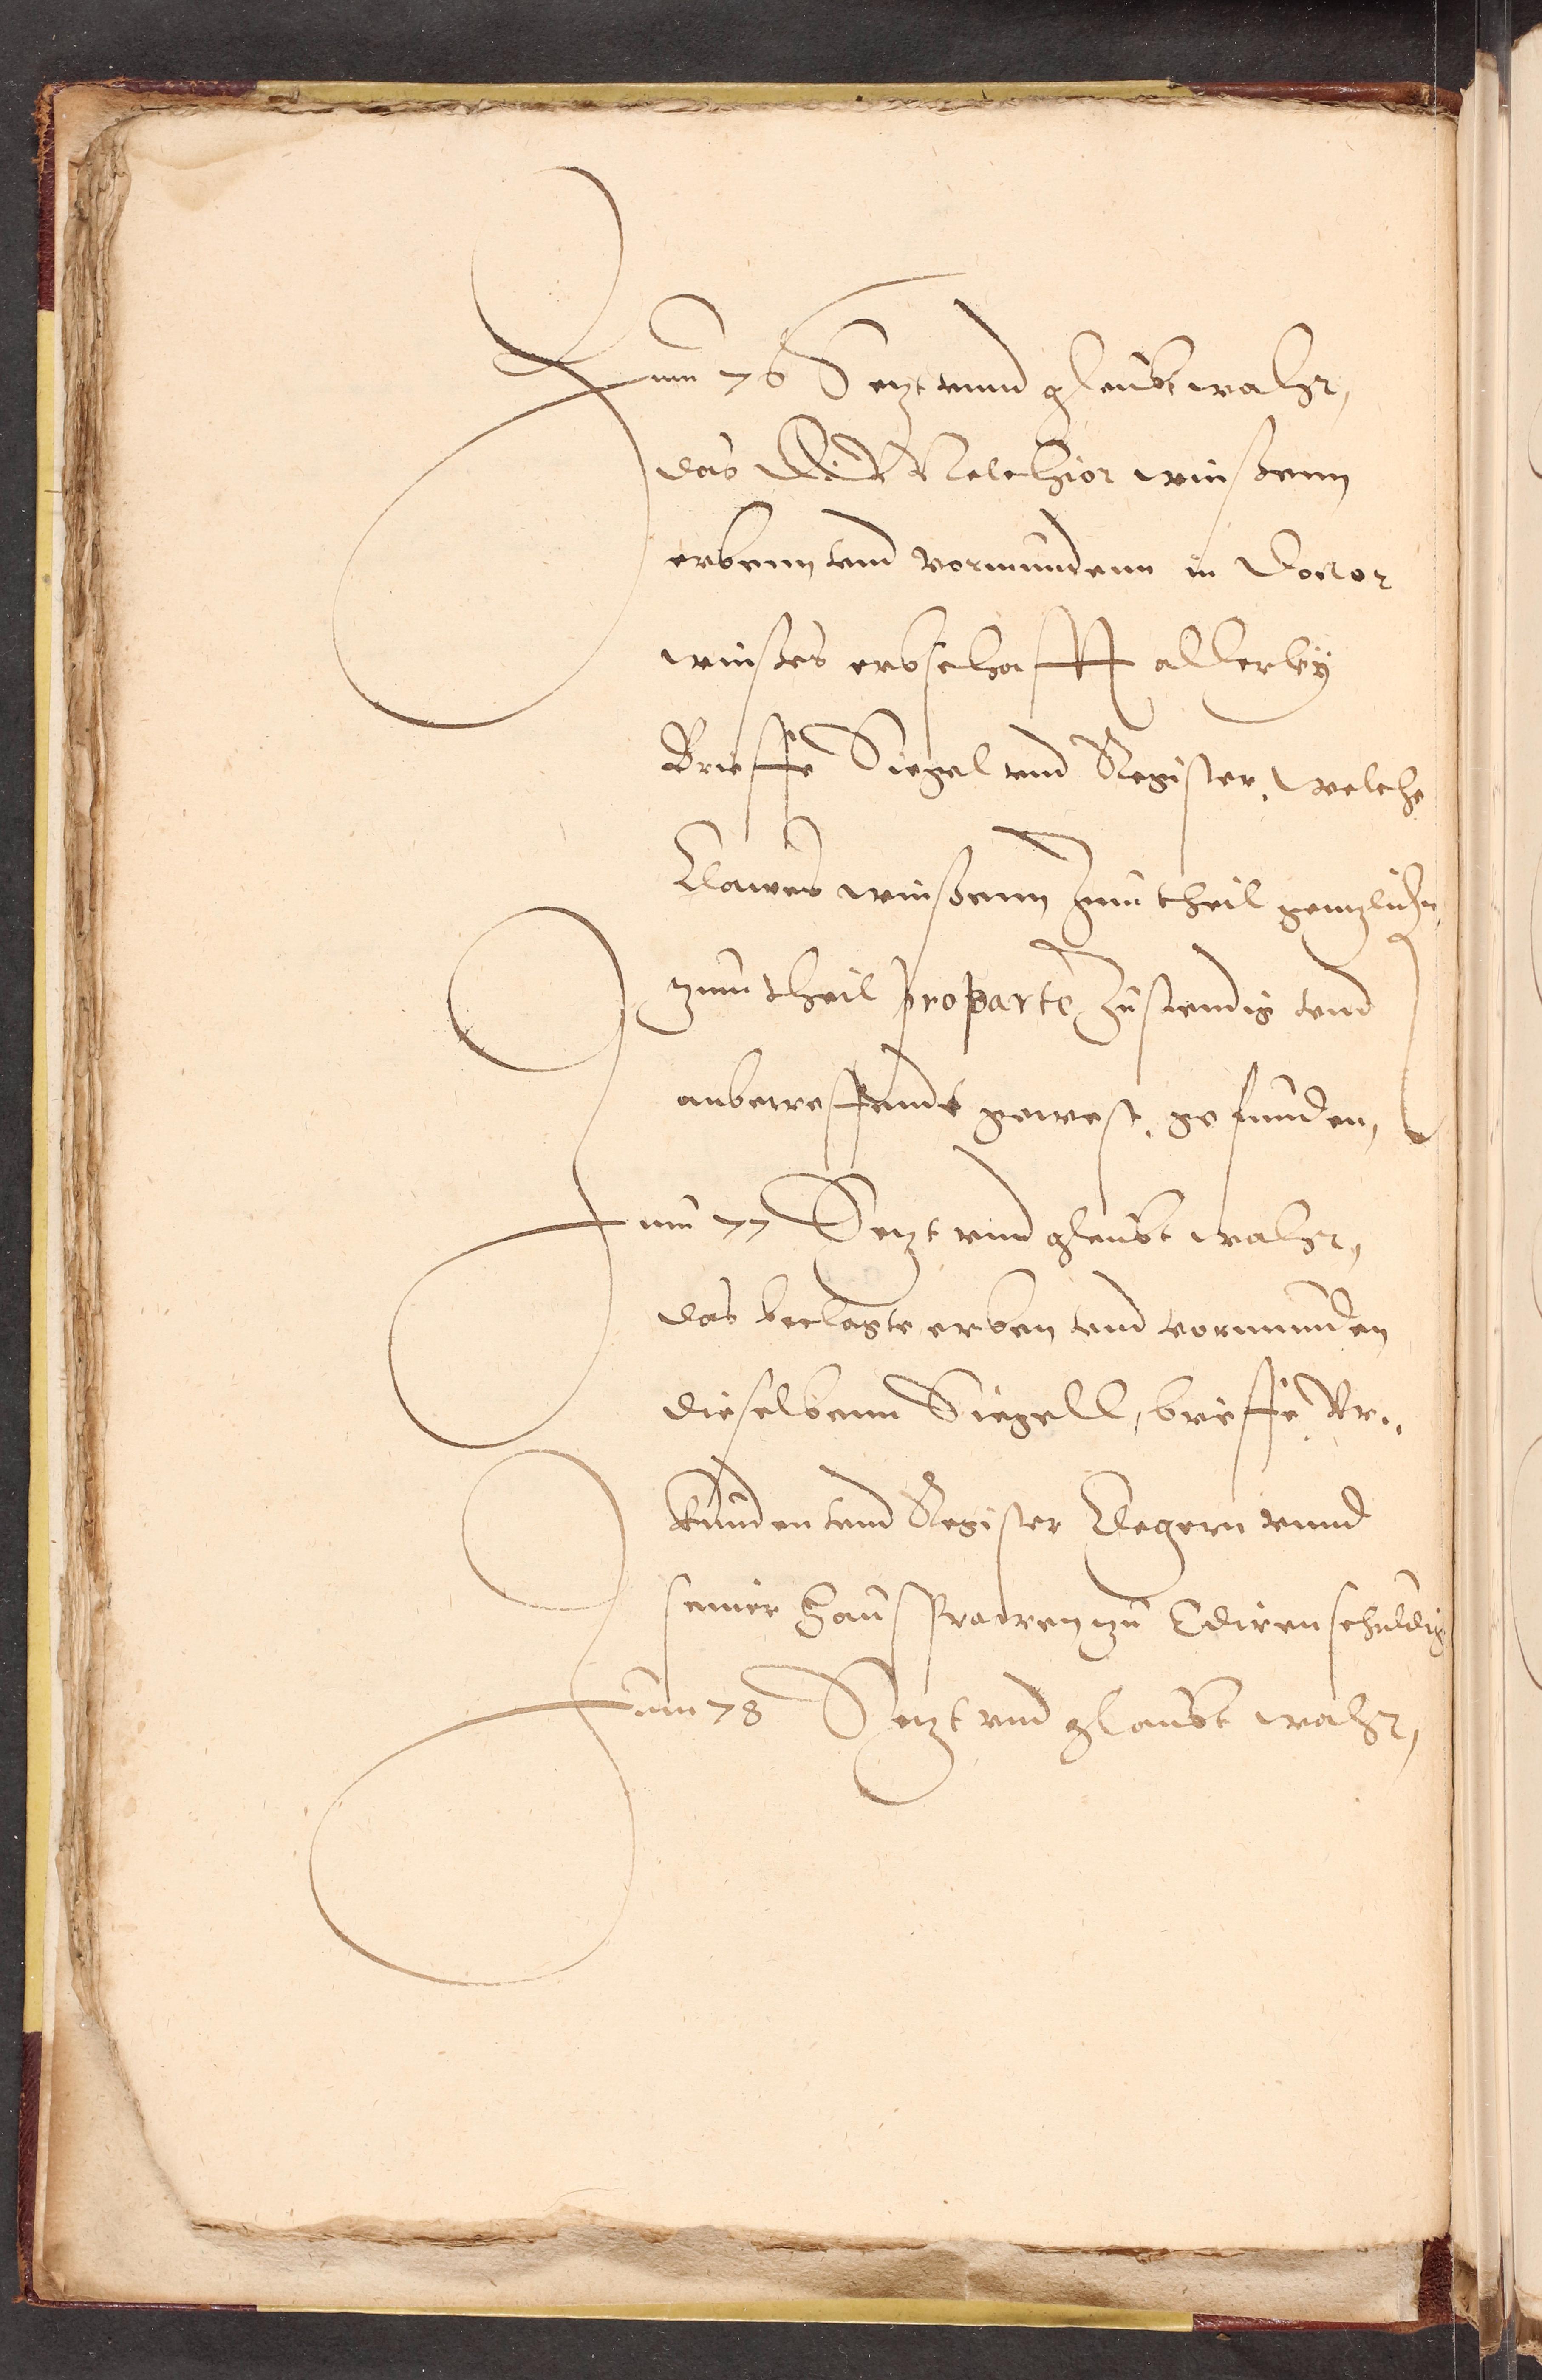 Zum 76 Setzt vnnd gleubt wahr,
das D. Melchior winßenn
erbenn vnd vormundenn in Doctor
winßes erbschafft allerley
Brieffe Siegel vnd Register, welche
Clawes winßenn zum theil gentzlichn,
zum theil pro parte zustendig vnd
anbetreffendt gewest, gefunden,
Zum 77 Setzt vnd gleubt wahr,
das beclagte erben vnd vormunden
dieselbenn Siegell, brieffe, Vr„
kunden vnd Register Clegern vnnd
seiner Hausfrawen zu Ediren schuldig
Zum 78 Setzt vnd glaubt wahr,